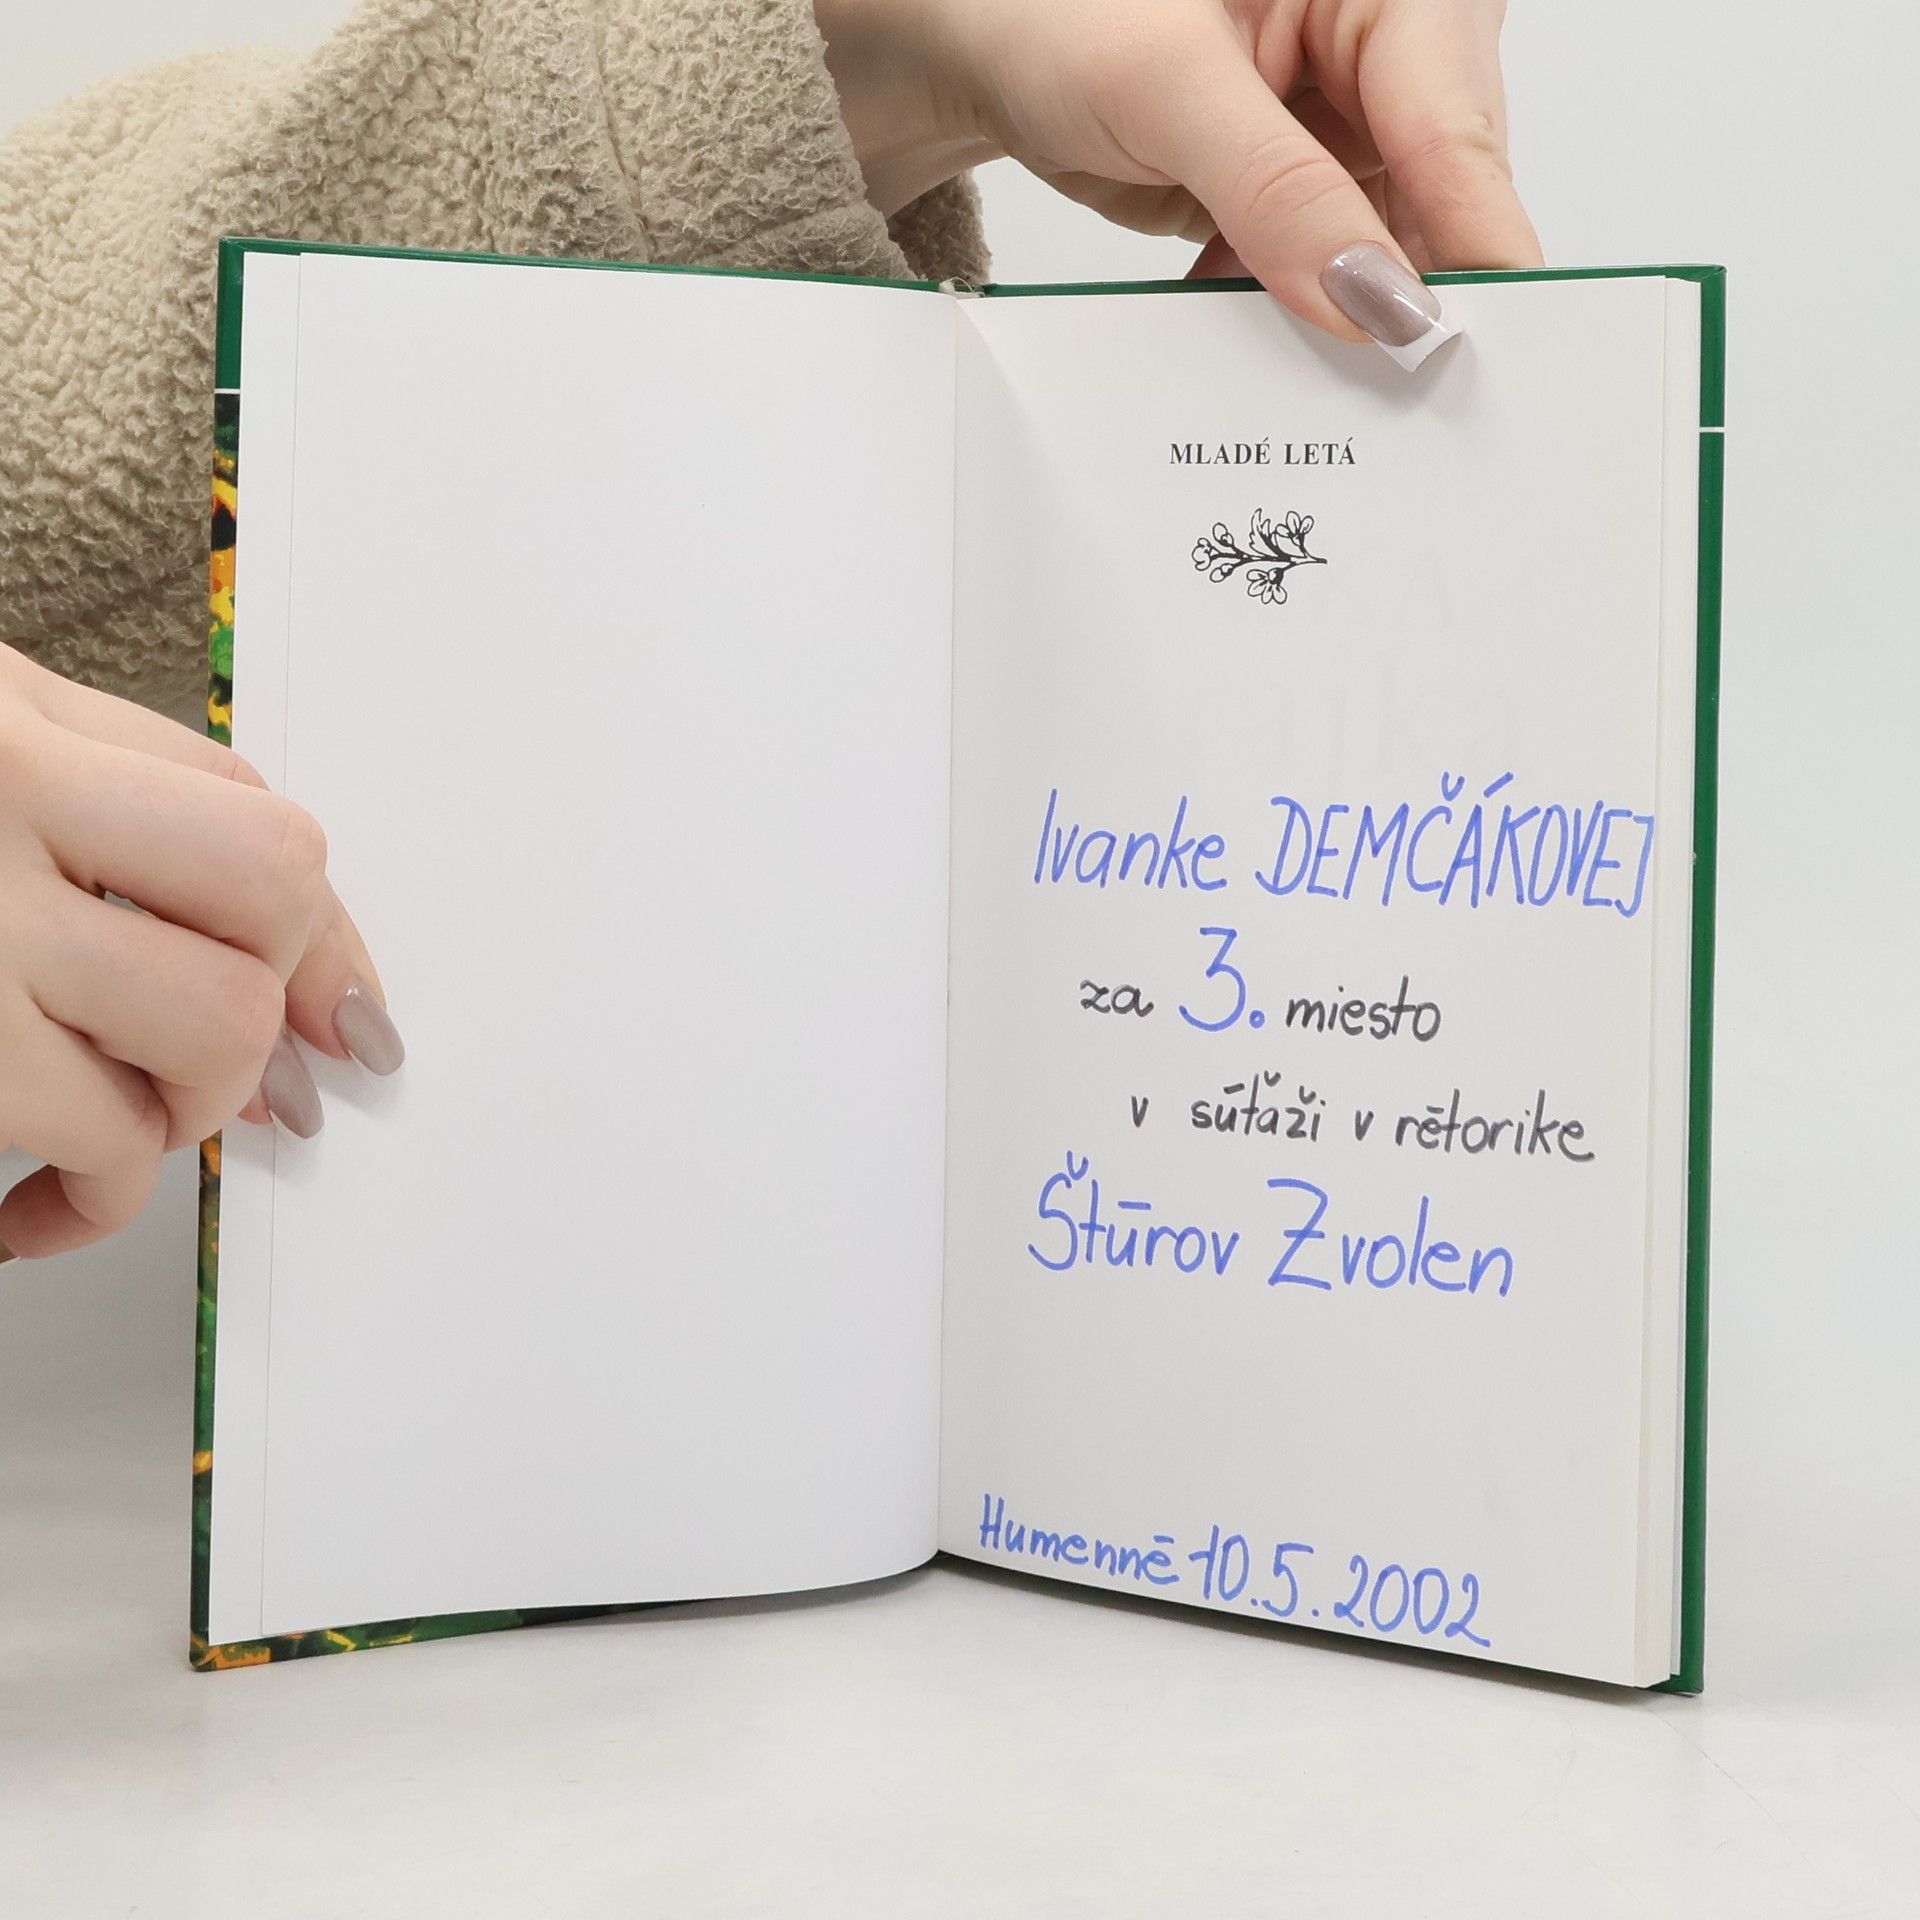 MLADÉ LETÁ
Ivanke DEMČÁKOVEJ
za 3. miesto
v súťaži v rétorike
Štúrov Zvolen
Humenné 10.5.2002